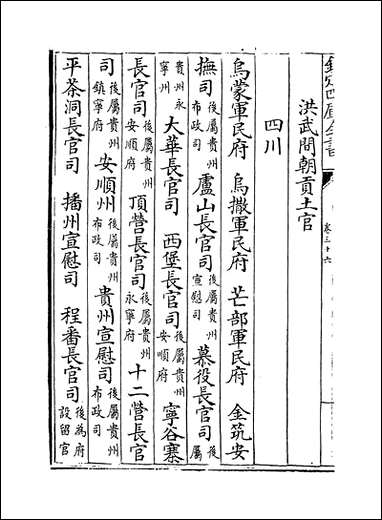 欽定四庫全書
卷三十六
洪武間朝貢土官
四川
烏蒙軍民府 烏撒軍民府 芒部軍民府 金筑安
撫司後屬貴州布政司 盧山長官司後屬貴州宣慰司 慕役長官司後屬
貴州永寧州 大華長官司 西堡長官司後屬貴州安順府 寧谷寨
長官司後屬貴州安順府 頂營長官司後屬貴州永寧府 十二營長官
司後屬貴州鎮寧府 安順州後屬貴州布政司 貴州宣慰司後屬貴州布政司
平茶洞長官司 播州宣慰司 程番長官司後為府設留官